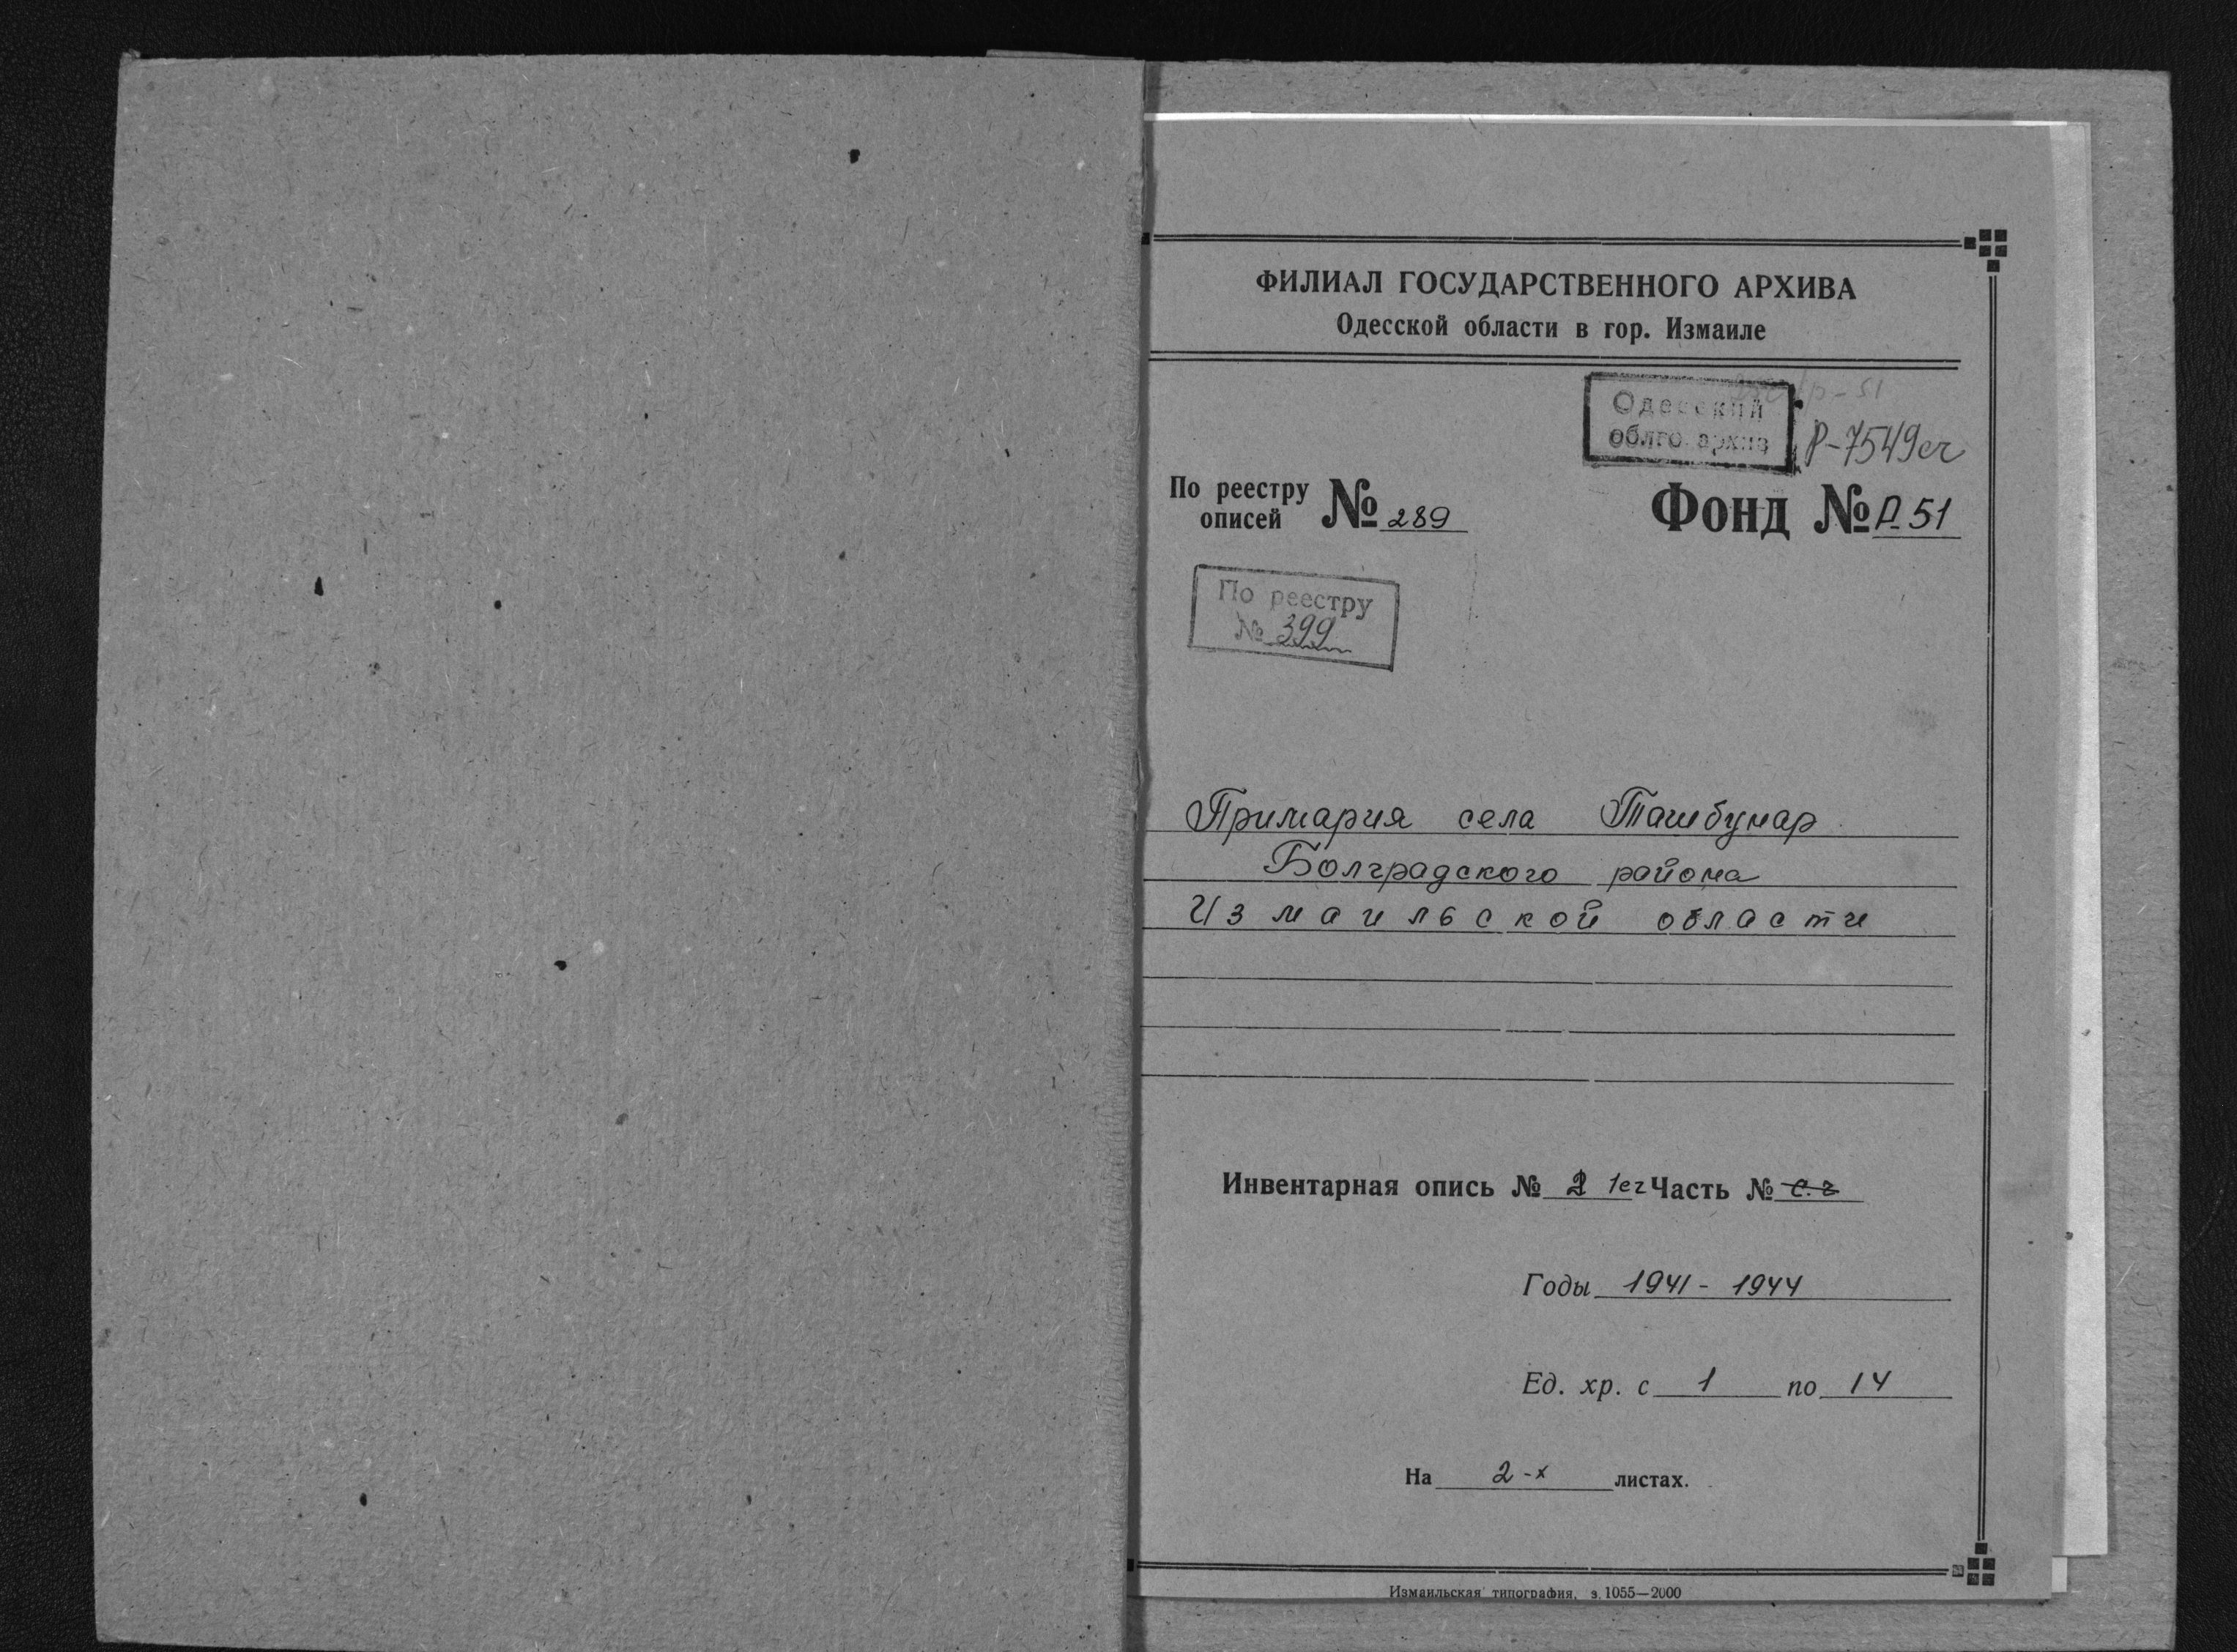 ФИЛИАЛ ГОСУДАРСТВЕННОГО АРХИВА
Одесской области в гор. Измаиле
р-51
Одесский
облго архив
Р-7549ег
По реестру
описей № 289
Фонд № Р-51
По реестру
№ 399
Примария села Ташбунар
Болградского района
Измаильской области
Инвентарная опись № 2 1ег Часть № с.г
Годы 1941 - 1944
Ед. хр. с 1 по 14
На 2-х листах.
Измаильская типография, з. 1055—2000